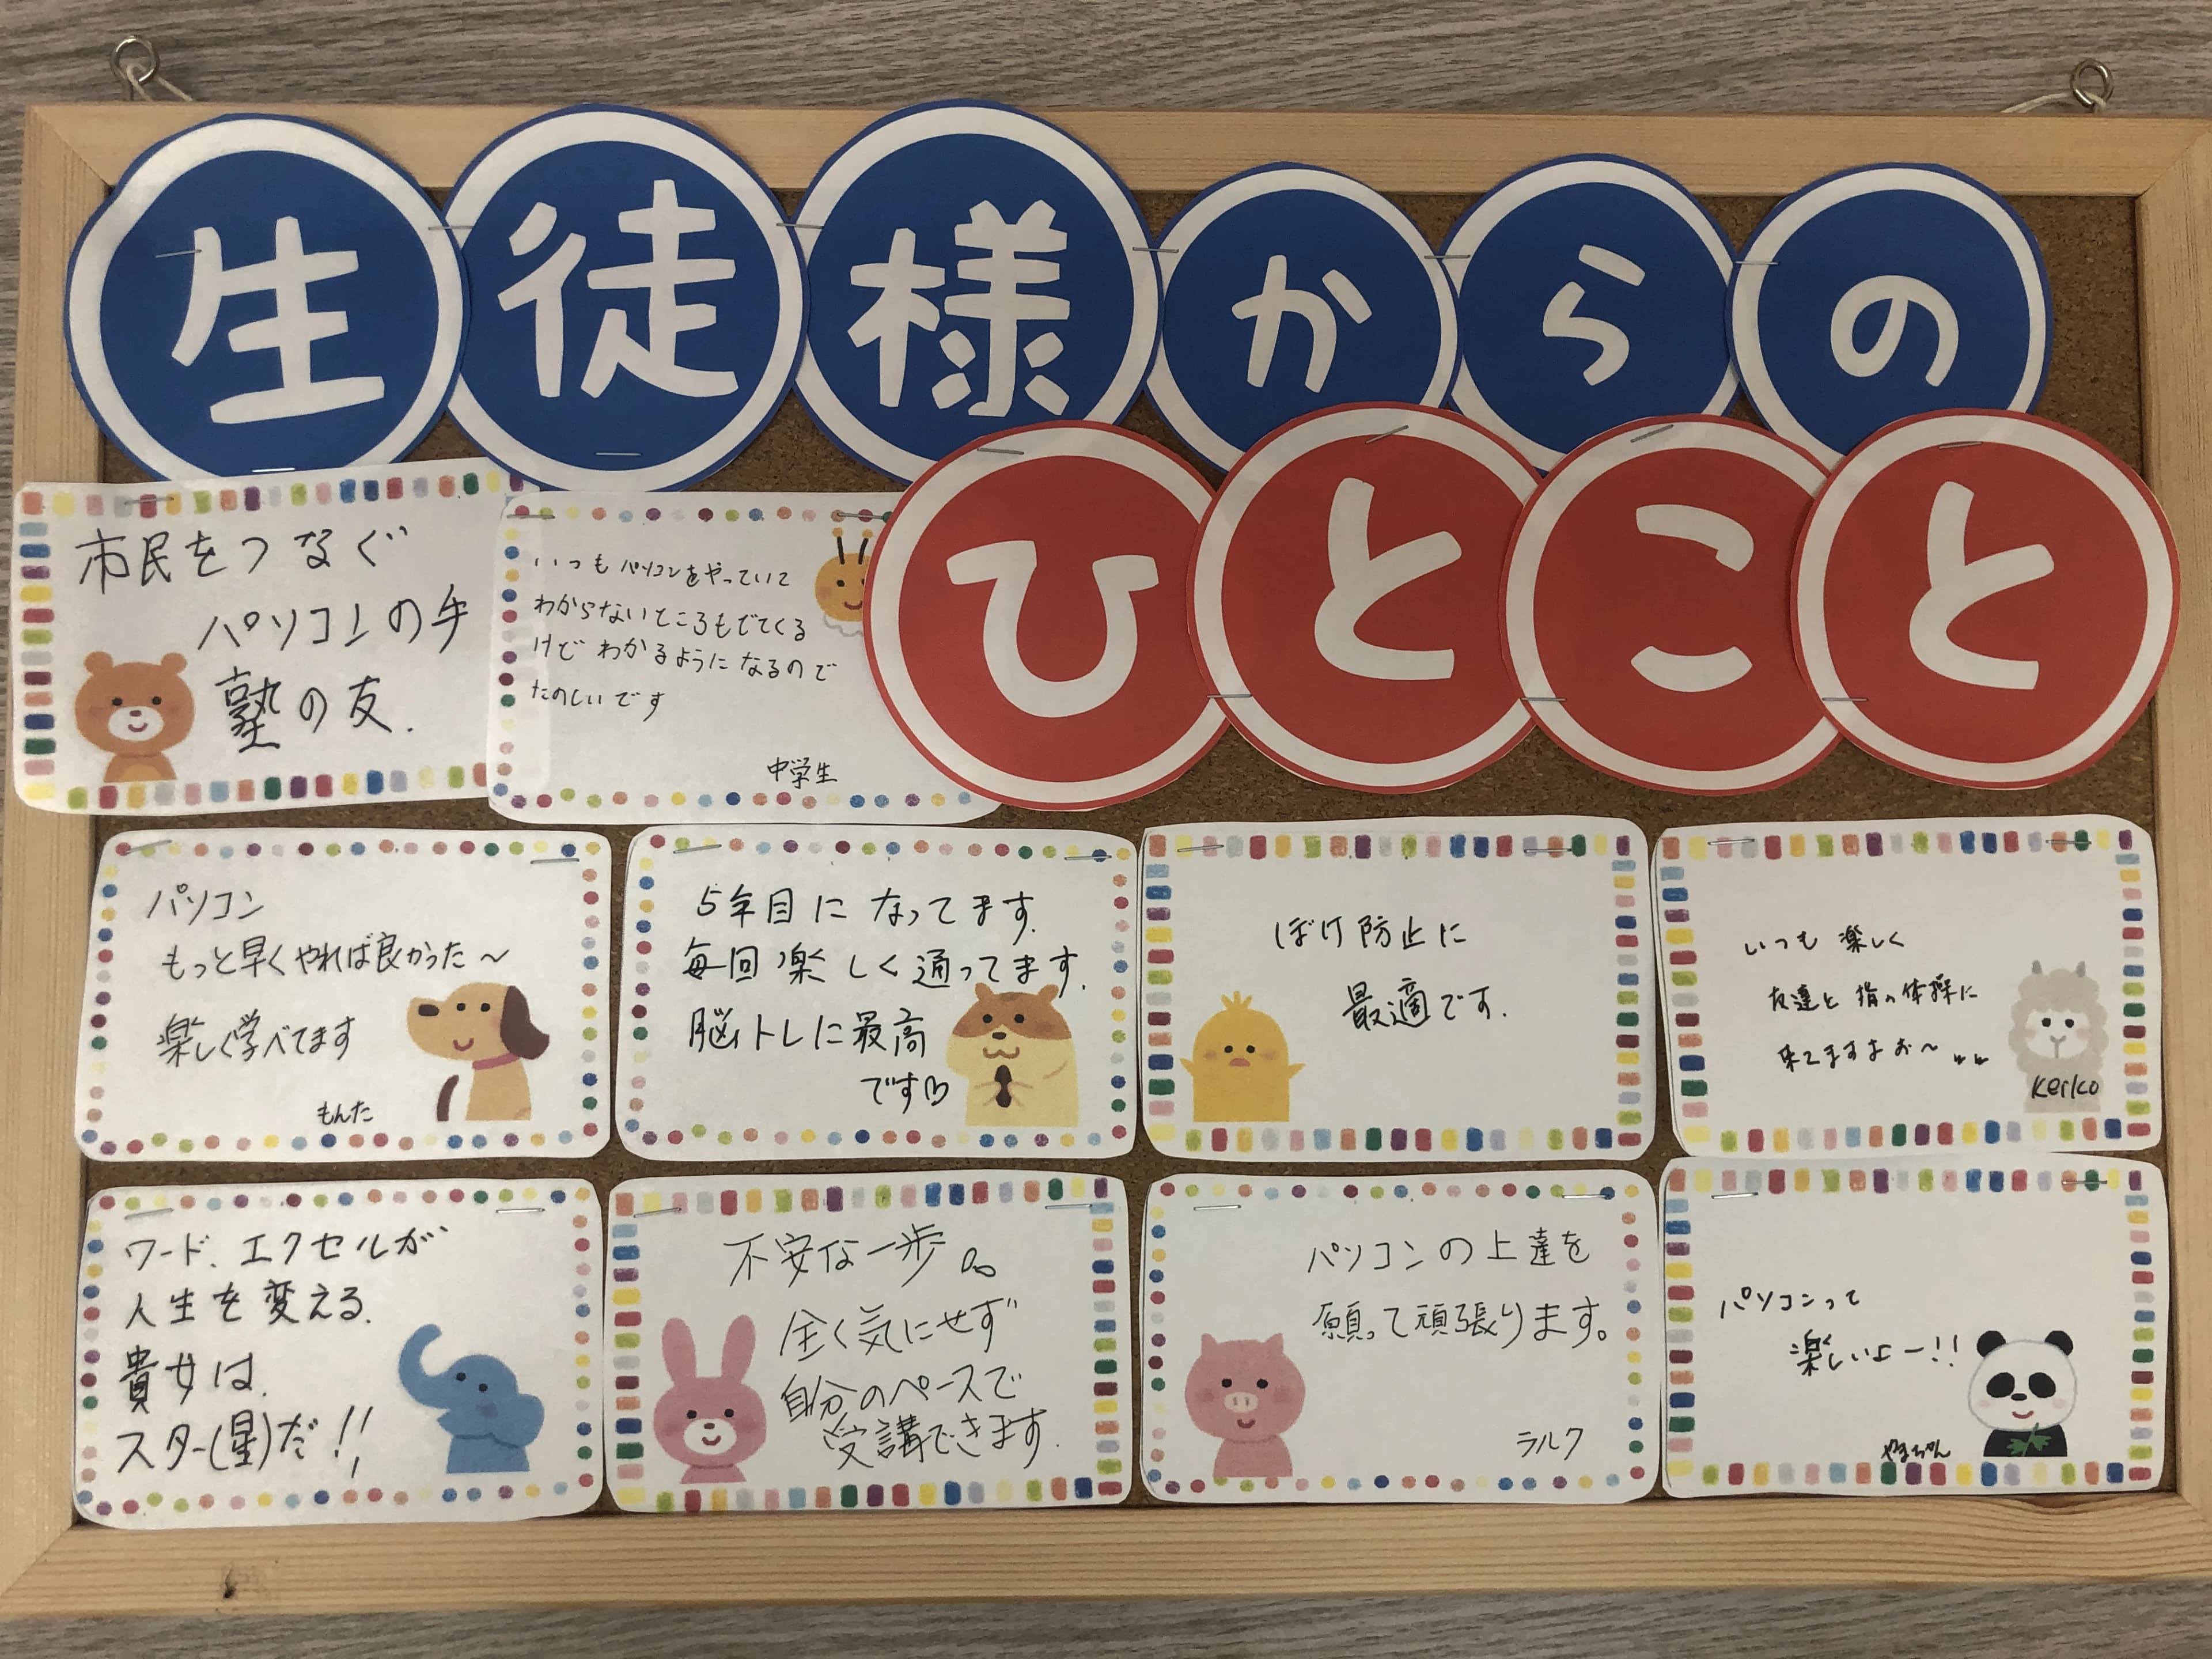 生徒様からの
ひとこと
市民をつなぐ
パソコンの手
塾の友.
いつもパソコンをやっていて
わからないところもでてくる
けど わかるように なるので
たのしいです
中学生
パソコン
もっと早くやれば良かった～
楽しく学べてます
もんた
5年目に なってます.
毎回楽しく通ってます.
脳トレに最高
です
ぼけ防止に
最適です.
いつも 楽しく
友達と 指の体操に
来てますよお～
keiko
ワード、エクセルが
人生を変える.
貴女は.
スター(星)だ!!
不安な一歩。
全く気にせず
自分のペースで
受講できます.
パソコンの上達を
願って頑張ります。
ラルク
パソコンって
楽しいよー!!
やまちゃん